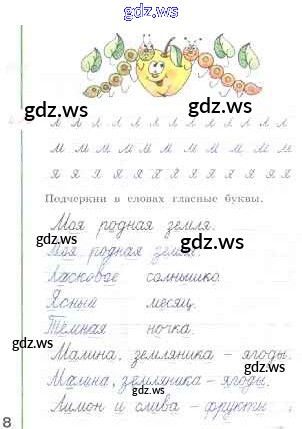 gdz.ws
gdz.ws gdz.ws
л л л л л л л л л л л л л л
м м м м м м м м м м м
я я я я я я я я я я я
Подчеркни в словах гласные буквы.
Моя родная земля.
gdz.ws
Моя родная земля.
Ласковое солнышко.
gdz.ws gdz.ws
Ясный месяц.
Тёмная ночка.
Малина, земляника – ягоды.
gdz.ws
Малина, земляника – ягоды.
Лимон и слива – фрукты.
8 gdz.ws gdz.ws